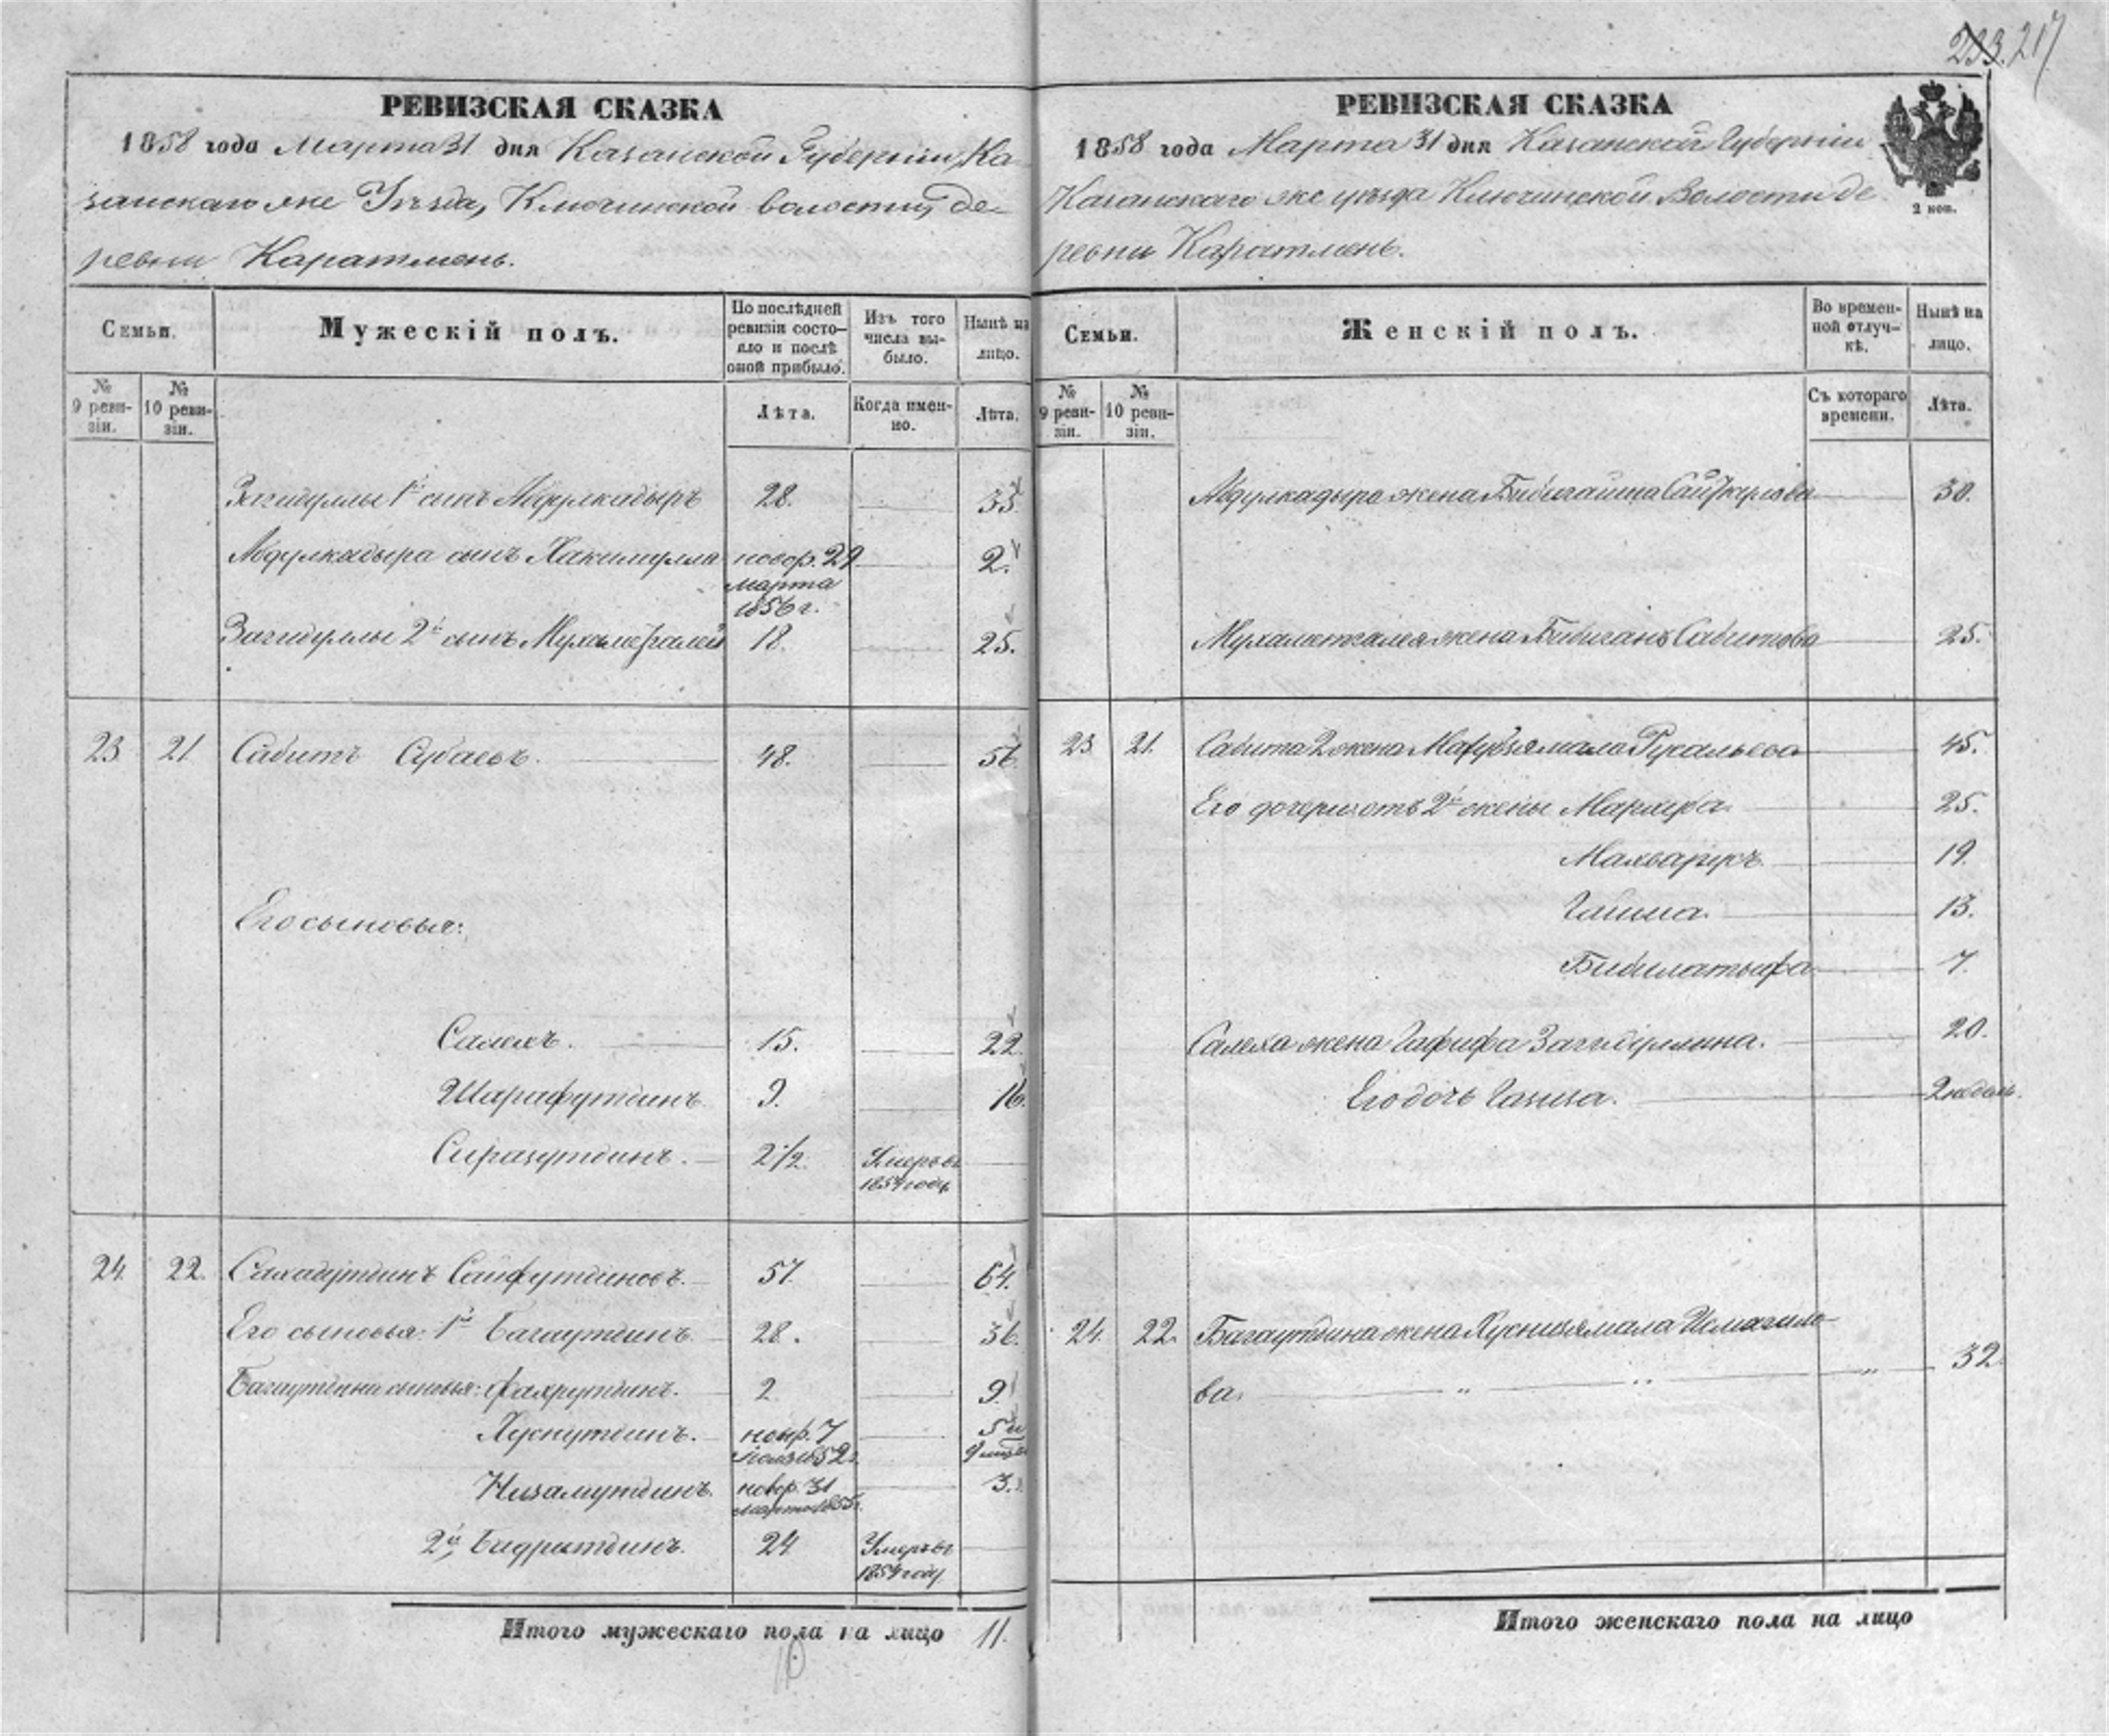 233. 217
РЕВИЗСКАЯ СКАЗКА
1858 года Марта 31 дня Казанской Губернии, Ка-
занскаго же Уѣзда, Ключинской волости, де-
ревни Каратмень.
Семьи.
Мужескій полъ.
По послѣдней
ревизіи состо-
яло и послѣ
оной прибыло.
Изъ того
числа вы-
было.
Нынѣ на
лицо.
№
9 реви-
зіи.
№
10 реви-
зіи.
Лѣта.
Когда имен-
но.
Лѣта.
Загидуллы 1й сынъ Абдулкадыръ 28. 35
Абдулкадыра сынъ Хакимулла новор. 29 2.
марта
1856 г.
Загидуллы 2й сынъ Мухаметгалей 18. 25.
23 21 Сабитъ Субаевъ. 48. 56
Его сыновья:
Салехъ. 15. 22.
Шарафутдинъ 9. 16.
Сиразутдинъ. 2 1/2. Умеръ въ
1854 году
24 22. Сахаутдинъ Сайфутдиновъ. 57. 64.
Его сыновья: 1й Багаутдинъ 28. 36.
Багаутдина сыновья: Фахрутдинъ. 2 9
Хуснутдинъ. новр. 7 5 и
1852 9 мѣс
Низамутдинъ. новр. 31 3.
марта 1855 г.
2й, Бадритдинъ. 24 Умеръ въ
1854 году
Итого мужескаго пола на лицо 11.
РЕВИЗСКАЯ СКАЗКА
1858 года Марта 31 дня Казанской Губерніи
Казанскаго же уѣзда Ключинской Волости де-
ревни Каратмень.
2 коп.
Семьи.
Женскій полъ.
Во времен-
ной отлуч-
кѣ.
Нынѣ на
лицо.
№
9 реви-
зіи.
№
10 реви-
зіи.
Съ котораго
времени.
Лѣта.
Абдулкадыра жена Бибигайша 30.
Мухаметгалея жена Бибиганъ Сабитова 25.
23 21. Сабита 2 жена 45.
Его дочери отъ 2й жены 25.
19.
Гайша. 13.
Бибилатыфа 7.
Салеха жена Гафифа Загидуллина. 20.
Его дочь Газиза. 2 недѣль.
24. 22. Багаутдина жена Хуснизямала Исмагило-
ва. 32.
Итого женскаго пола на лицо